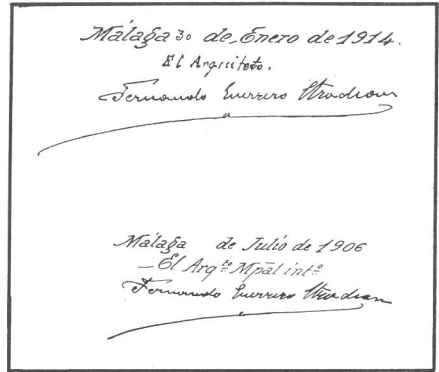 Málaga 30 de Enero de 1914.
El Arquiteto.
Fernando Guerrero Strachan
Málaga de Julio de 1906
El Arqto Mpal intº
Fernando Guerrero Strachan